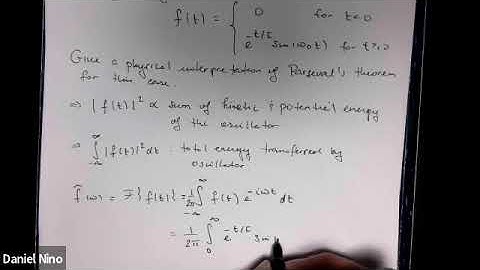 f(t) = { 0 for t<0
e^{-t/τ} sin(ω₀t) for t≥0
Give a physical interpretation of Parseval's theorem
for this case.
⇒ |f(t)|² ∝ sum of kinetic & potential energy
of the oscillator
⇒ ∫_{-∞}^{∞} |f(t)|² dt : total energy transferred by
oscillator
f̃(ω) = F{f(t)} = 1/2π ∫_{-∞}^{∞} f(t) e^{-iωt} dt
= 1/2π ∫_0^∞ e^{-t/τ} sin
Daniel Nino